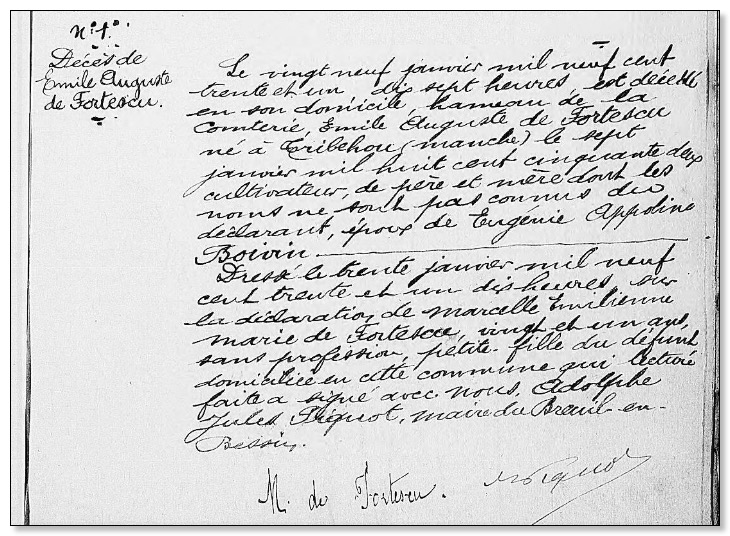 N: 1.
Décès de
Emile Auguste
de Fortescu.
Le vingt neuf janvier mil neuf cent
trente et un, dix sept heures, est décédé
en son domicile, hameau de la
Comterie, Emile Auguste de Fortescu
né à Tribehou (manche) le sept
janvier mil huit cent cinquante deux
cultivateur, de père et mère dont les
noms ne sont pas connus du
déclarant, époux de Eugénie Appoline
Boivin
Dressé le trente janvier mil neuf
cent trente et un dix heures, sur
la déclaration de Marcelle Emilienne
Marie de Fortescu, vingt et un ans,
sans profession, petite-fille du défunt
domiciliée en cette commune qui lecture
faite a signé avec nous, Adolphe
Jules Piquot, maire du Breuil-en-
Bessin.
M. de Fortescu. Piquot